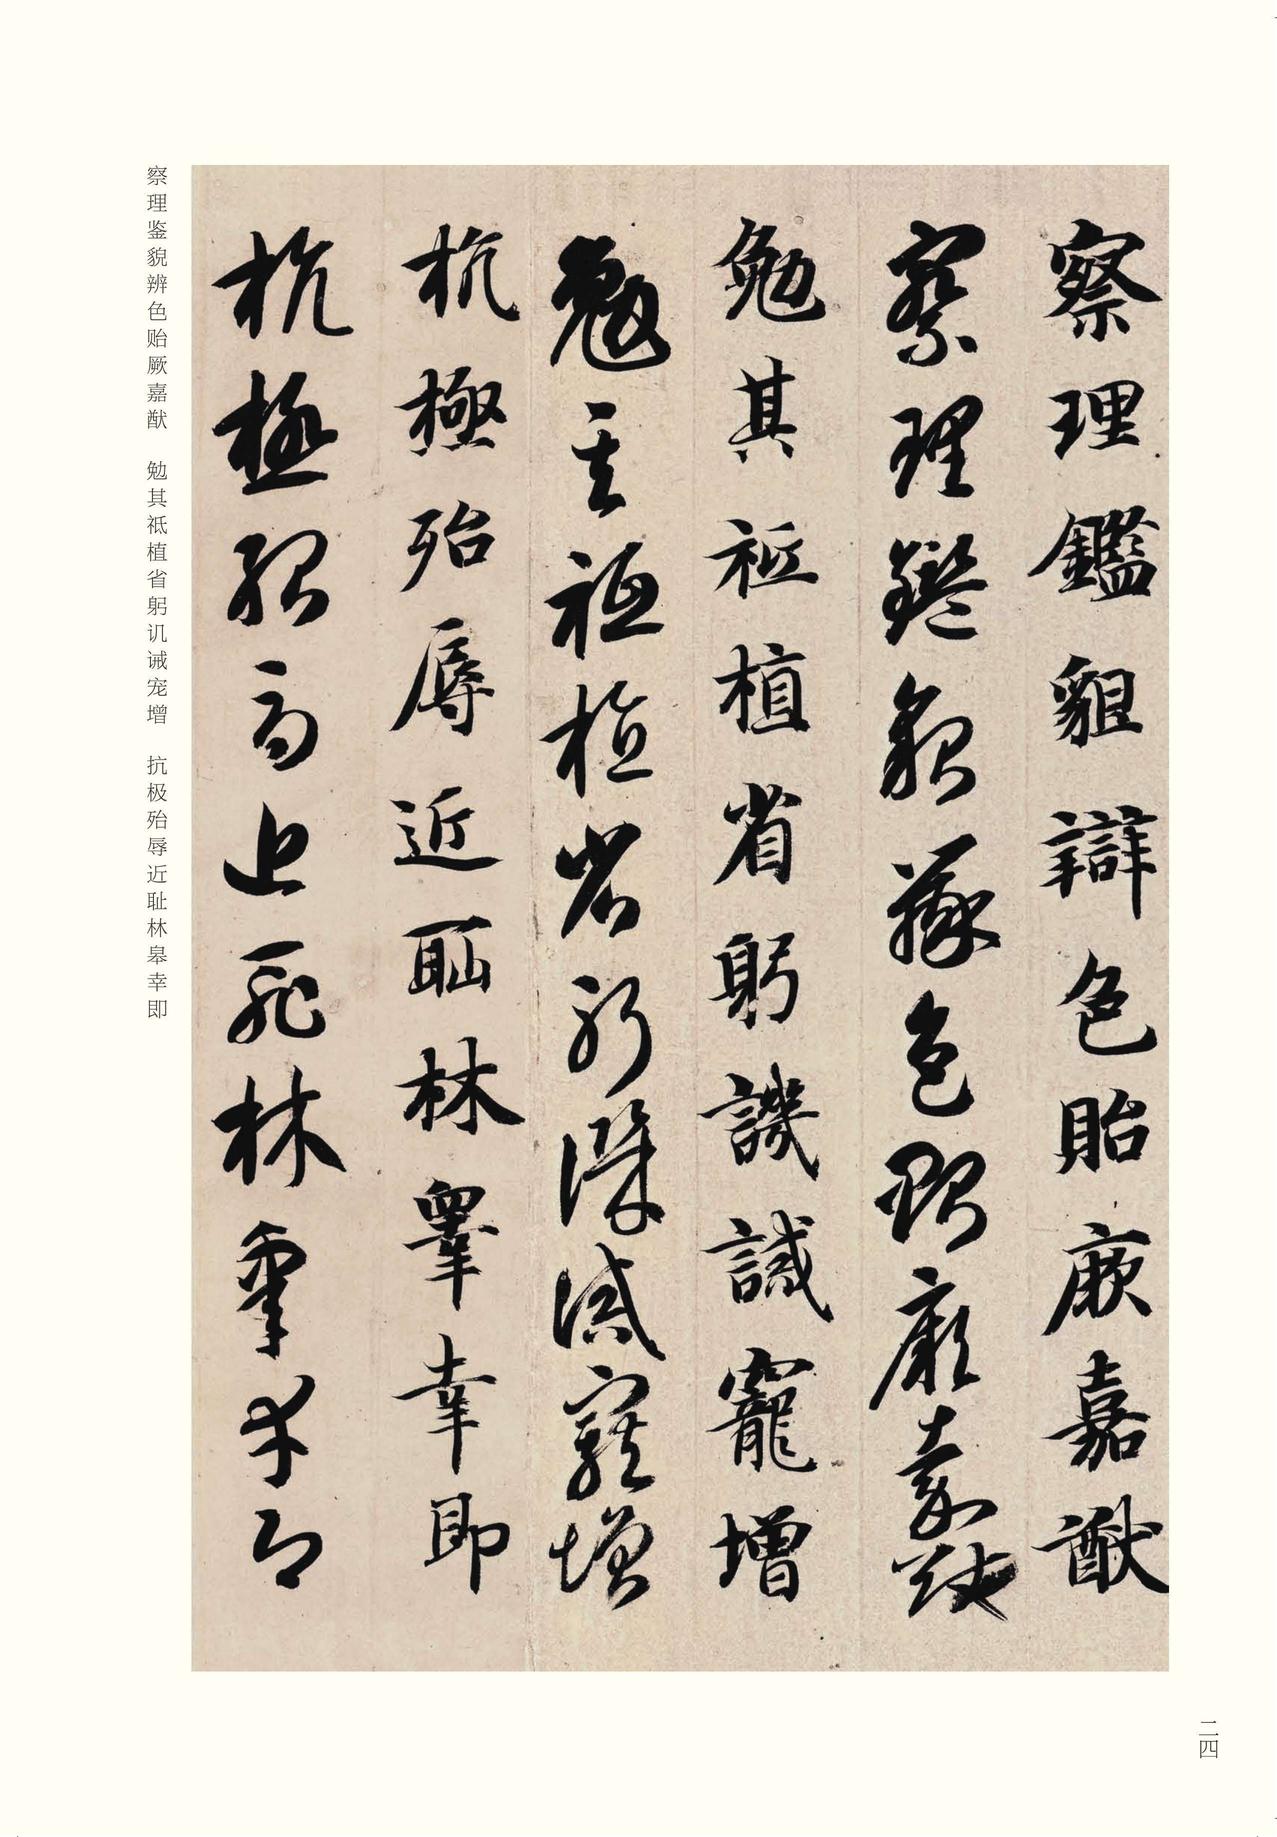 察理鑑貌辯色貽厥嘉猷
察理鑑貌辯色貽厥嘉猷
勉其祗植省躬譏誡寵增
勉其祗植省躬譏誡寵增
杭極殆辱近恥林睪幸即
杭極殆辱近恥林睪幸即
察理鉴貌辨色贻厥嘉猷　勉其祗植省躬讥诫宠增　抗极殆辱近耻林皋幸即
二四